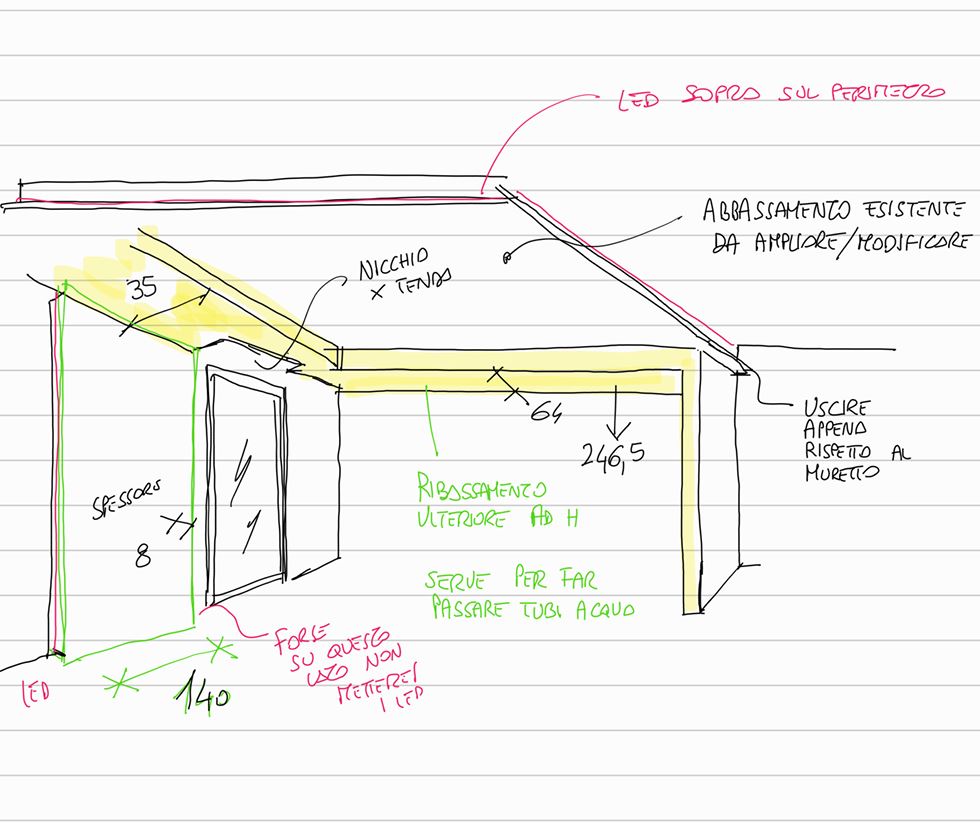 LED SOPRA SUL PERIMETRO
ABBASSAMENTO ESISTENTE
DA AMPLIARE/MODIFICARE
NICCHIA
X TENDA
35
64
246,5
USCIRE
APPENA
RISPETTO AL
MURETTO
SPESSORE
8
RIBASSAMENTO
ULTERIORE AD H
SERVE PER FAR
PASSARE TUBI ACQUA
FORSE
SU QUESTO
LATO NON
METTEREI
I LED
LED
140